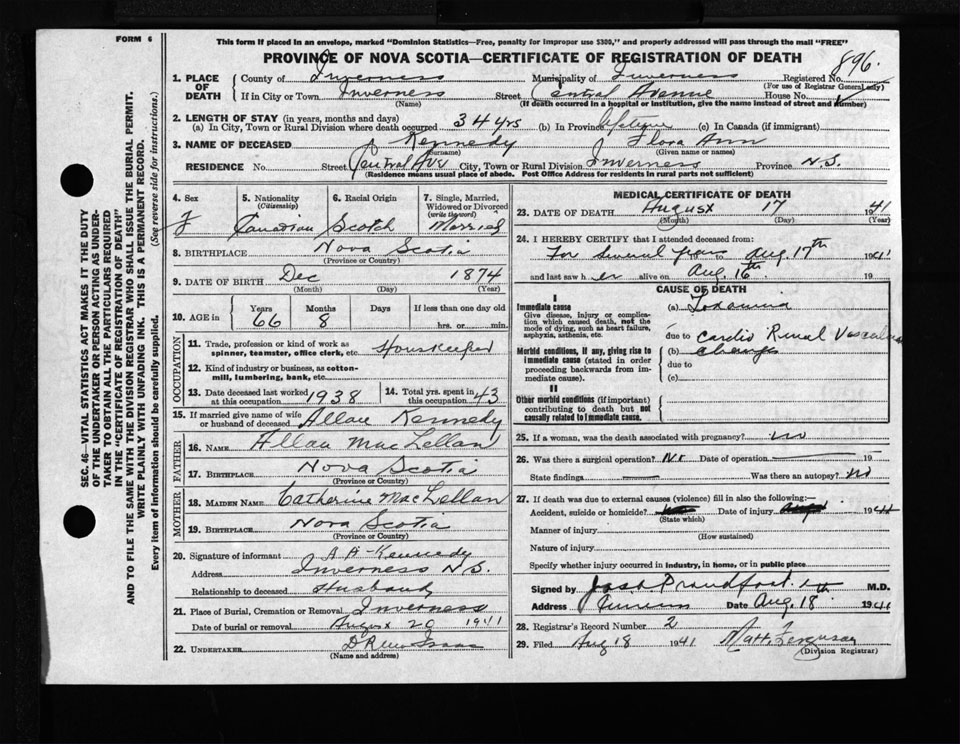 FORM 6
This form if placed in an envelope, marked "Dominion Statistics—Free, penalty for improper use $300," and properly addressed will pass through the mail "FREE"
PROVINCE OF NOVA SCOTIA—CERTIFICATE OF REGISTRATION OF DEATH
896.
1. PLACE OF DEATH County of Inverness Municipality of Inverness Registered No.
(For use of Registrar General only)
If in City or Town Inverness Street Central Avenue House No.
(Name) (If death occurred in a hospital or institution, give the name instead of street and number)
2. LENGTH OF STAY (in years, months and days)
(a) In City, Town or Rural Division where death occurred 34 yrs (b) In Province Lifetime (c) In Canada (if immigrant)
3. NAME OF DECEASED Kennedy Flora Ann
(Surname) (Given name or names)
RESIDENCE No. Street Central Ave City, Town or Rural Division Inverness Province N.S.
(Residence means usual place of abode. Post Office Address for residents in rural parts not sufficient)
4. Sex 5. Nationality (Citizenship) 6. Racial Origin 7. Single, Married, Widowed or Divorced (write the word)
F Canadian Scotch Married
8. BIRTHPLACE Nova Scotia
(Province or Country)
9. DATE OF BIRTH Dec 1874
(Month) (Day) (Year)
10. AGE in Years Months Days If less than one day
66 8 hrs. or min.
OCCUPATION
11. Trade, profession or kind of work as spinner, teamster, office clerk, etc. Housekeeper
12. Kind of industry or business, as cotton-mill, lumbering, bank, etc.
13. Date deceased last worked at this occupation 1938 14. Total yrs. spent in this occupation 43
15. If married give name of wife or husband of deceased Allan Kennedy
FATHER
16. NAME Allan MacLellan
17. BIRTHPLACE Nova Scotia
(Province or Country)
MOTHER
18. MAIDEN NAME Catherine MacLellan
19. BIRTHPLACE Nova Scotia
(Province or Country)
20. Signature of informant A A Kennedy
Address Inverness N.S.
Relationship to deceased Husband
21. Place of Burial, Cremation or Removal Inverness
Date of burial or removal August 20 1941
22. UNDERTAKER
(Name and address)
MEDICAL CERTIFICATE OF DEATH
23. DATE OF DEATH August 17 1941
(Month) (Day) (Year)
24. I HEREBY CERTIFY that I attended deceased from:
For several years to Aug. 17th 1941
and last saw her alive on Aug. 16th 19
CAUSE OF DEATH
I
Immediate cause
Give disease, injury or complication which caused death, not the mode of dying, such as heart failure, asphyxia, asthenia, etc.
(a) Toxemia
due to Cardio Renal Vascular
Morbid conditions, if any, giving rise to immediate cause (stated in order proceeding backwards from immediate cause).
(b) changes
due to
(c)
II
Other morbid conditions (if important) contributing to death but not causally related to immediate cause.
25. If a woman, was the death associated with pregnancy? no
26. Was there a surgical operation? No Date of operation 19
State findings Was there an autopsy? no
27. If death was due to external causes (violence) fill in also the following:
Accident, suicide or homicide? Date of injury 1941
(State which)
Manner of injury
(How sustained)
Nature of injury
Specify whether injury occurred in industry, in home, or in public place
Signed by M.D.
Address Date Aug. 18 1941
28. Registrar's Record Number 2
29. Filed Aug 18 1941 Matt. Ferguson
(Division Registrar)
SEC. 46—VITAL STATISTICS ACT MAKES IT THE DUTY
OF THE UNDERTAKER OR PERSON ACTING AS UNDER-
TAKER TO OBTAIN ALL THE PARTICULARS REQUIRED
IN THE "CERTIFICATE OF REGISTRATION OF DEATH"
AND TO FILE THE SAME WITH THE DIVISION REGISTRAR WHO SHALL ISSUE THE BURIAL PERMIT.
WRITE PLAINLY WITH UNFADING INK. THIS IS A PERMANENT RECORD.
Every item of information should be carefully supplied. (See reverse side for instructions.)